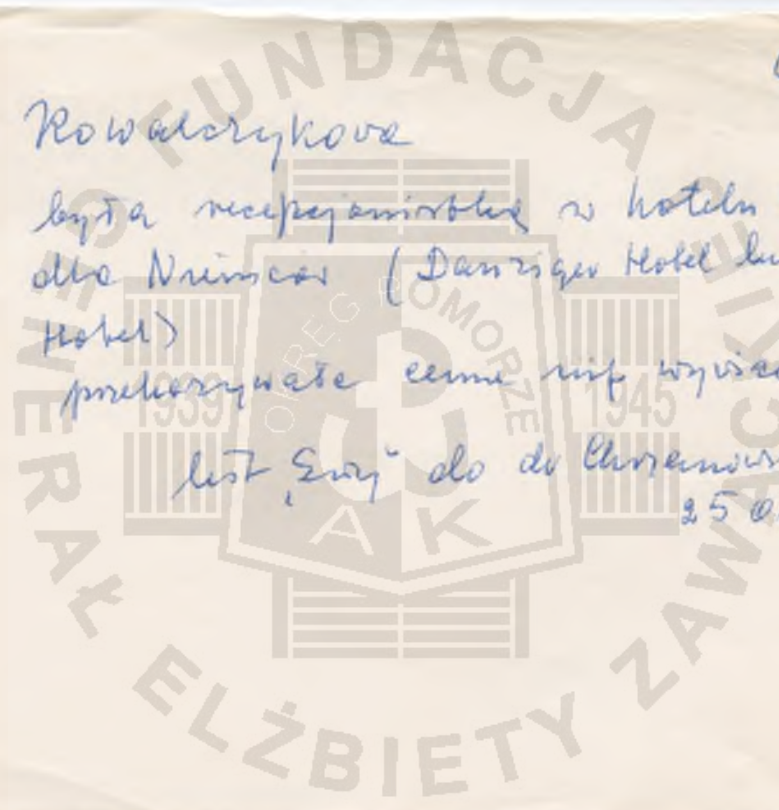 Kowalczykowa
była recepcjonistką w hotelu
dla Niemców (Danziger Hotel lu
Hotel)
przekazywała cenne inf wywiad
list „Ewy” do dr Chrzanows
25
FUNDACJA GENERAŁ ELŻBIETY ZAWACKIEJ
OKRĘG POMORZE
1939 1945
AK